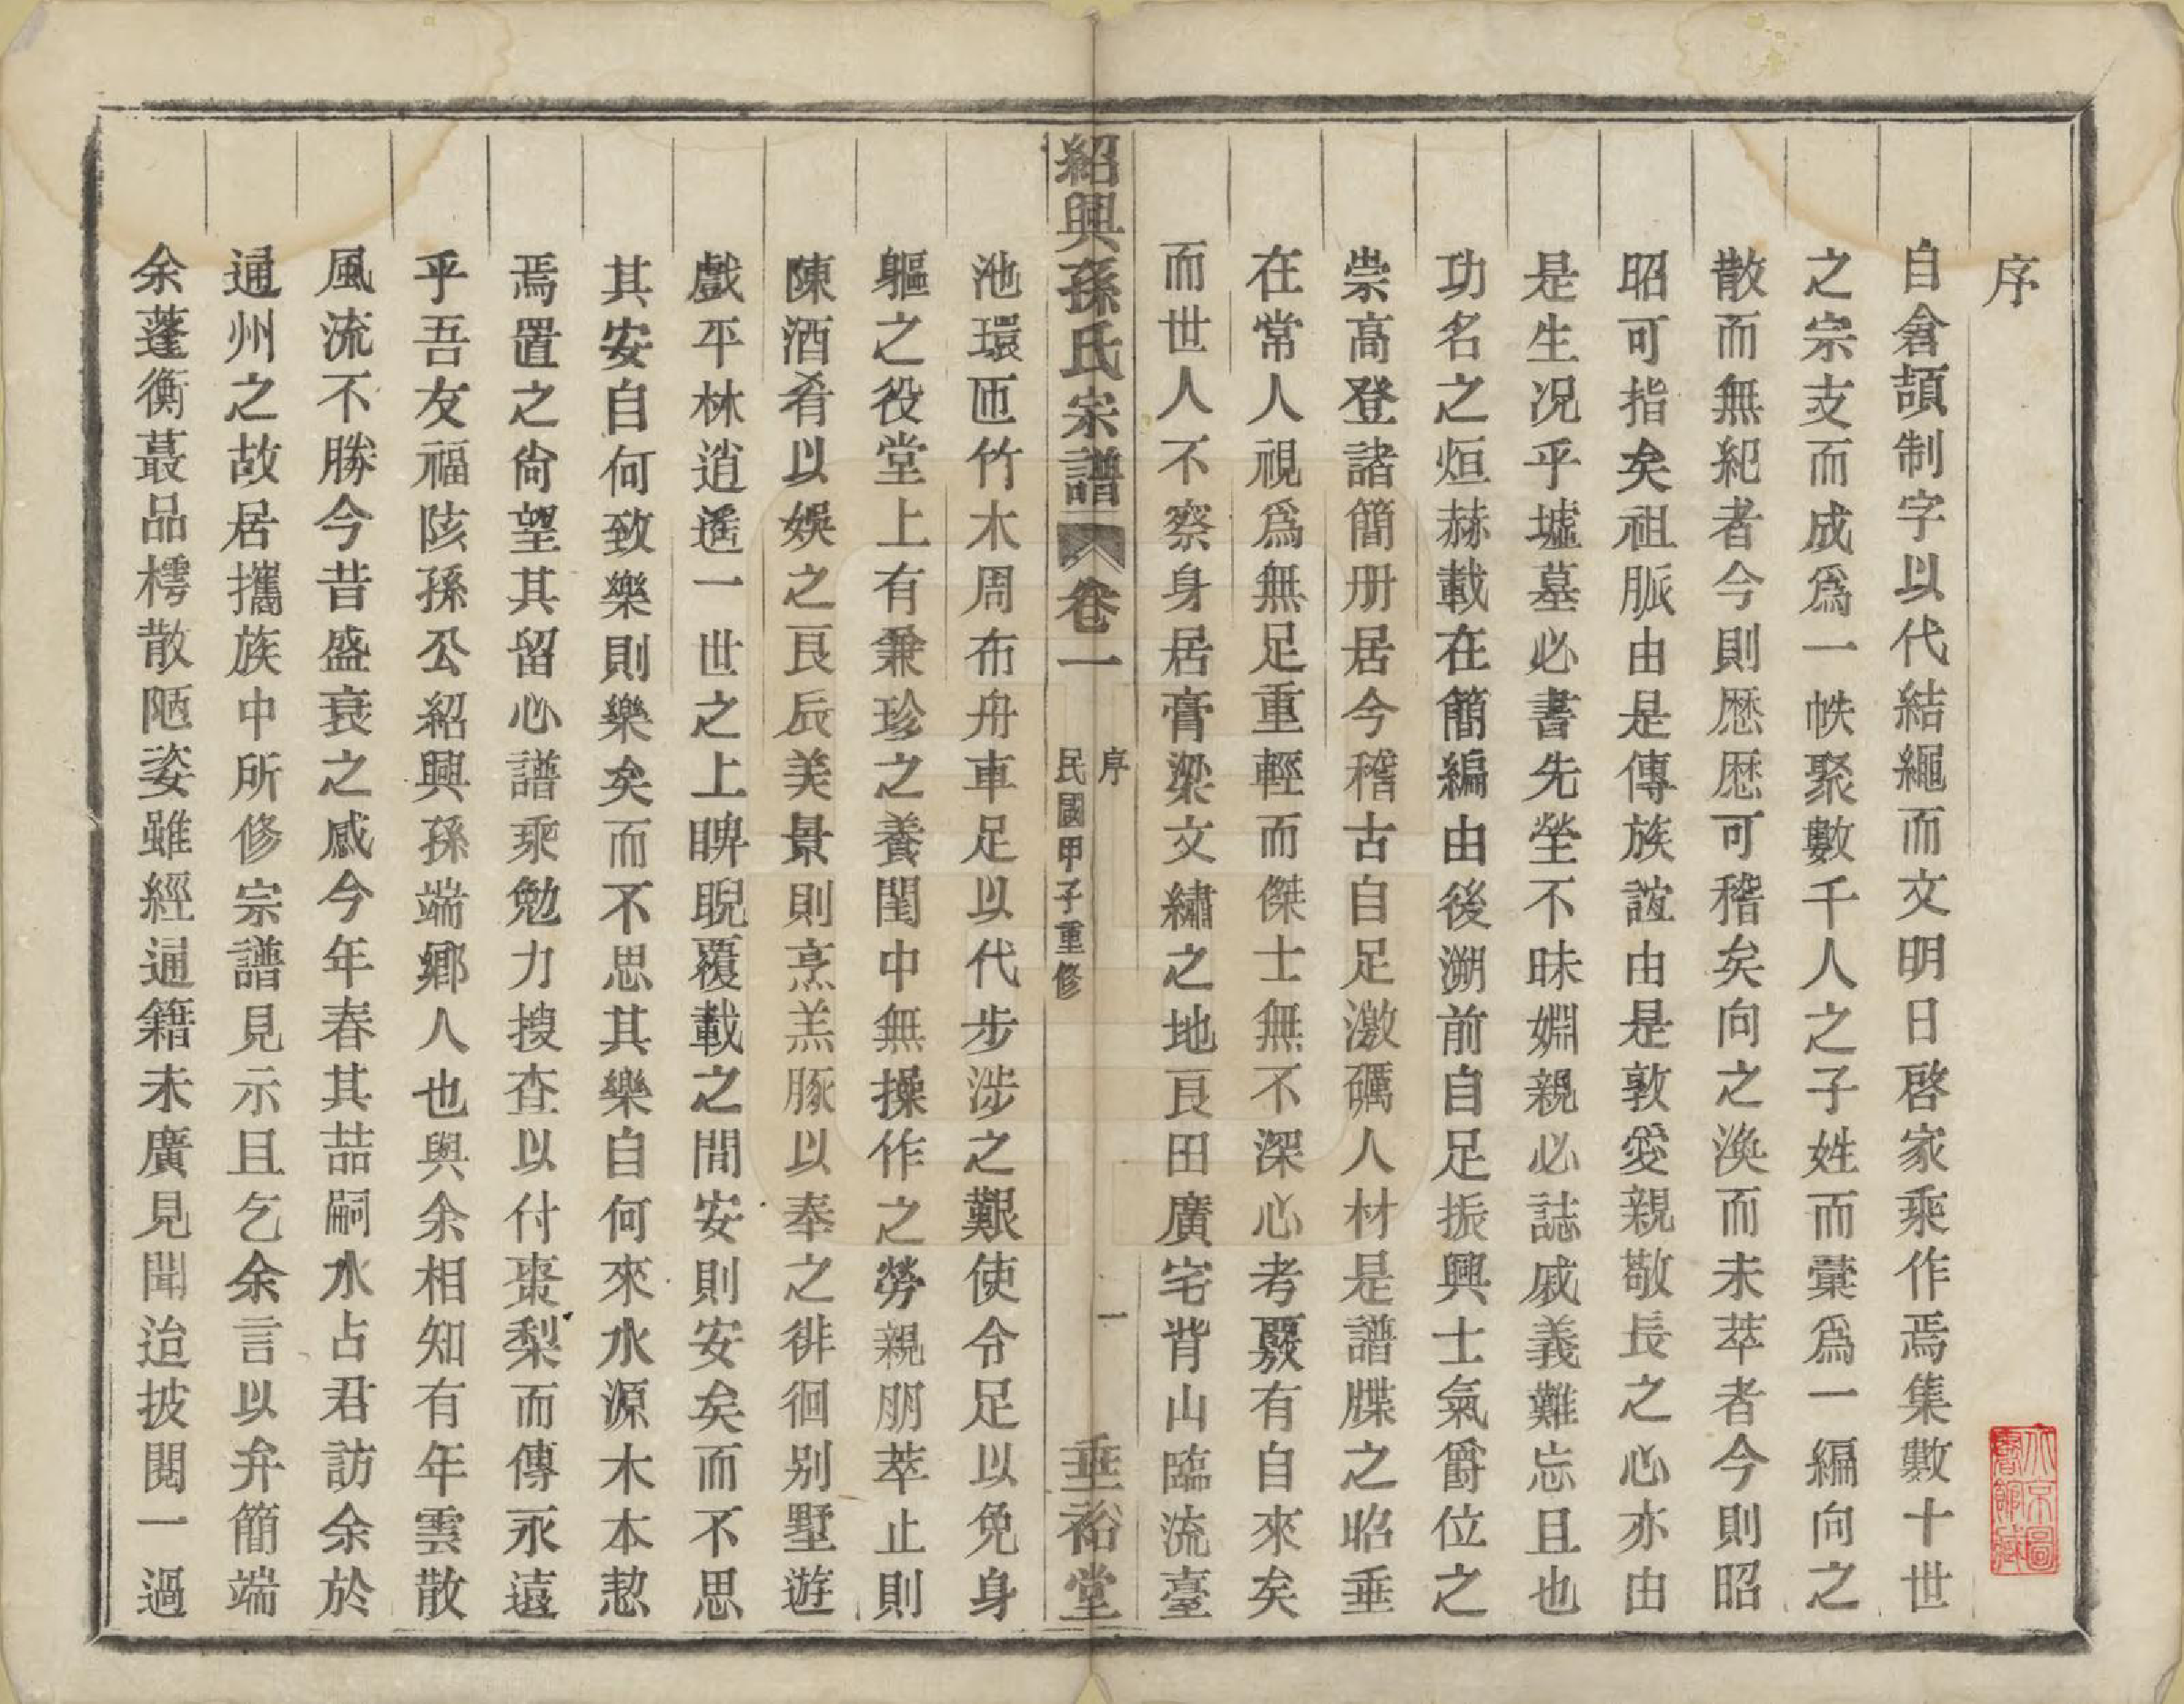 序
自倉頡制字以代結繩而文明日啓家乘作焉集數十世
之宗支而成爲一帙聚數千人之子姓而彚爲一編向之
散而無紀者今則歷歷可稽矣向之渙而未萃者今則昭
昭可指矣祖脈由是傳族誼由是敦愛親敬長之心亦由
是生况乎墟墓必書先塋不昧婣親必誌戚義難忘且也
功名之烜赫載在簡編由後溯前自足振興士氣爵位之
崇高登諸簡册居今稽古自足激礪人材是譜牒之昭垂
在常人視爲無足重輕而傑士無不深心考覈有自來矣
而世人不察身居膏粱文繡之地良田廣宅背山臨流臺
紹興孫氏宗譜
卷一
序
民國甲子重修
一
垂裕堂
池環匝竹木周布舟車足以代步涉之艱使令足以免身
軀之役堂上有兼珍之養閨中無操作之勞親朋萃止則
陳酒肴以娛之良辰美景則烹羔豚以奉之徘徊别墅遊
戲平林逍遙一世之上睥睨覆載之間安則安矣而不思
其安自何致樂則樂矣而不思其樂自何來水源木本愸
焉置之尙望其留心譜乘勉力搜查以付棗梨而傳永遠
乎吾友福陔孫公紹興孫端鄉人也與余相知有年雲散
風流不勝今昔盛衰之感今年春其喆嗣水占君訪余於
通州之故居攜族中所修宗譜見示且乞余言以弁簡端
余蓬衡蕞品樗散陋姿雖經通籍未廣見聞迨披閱一過